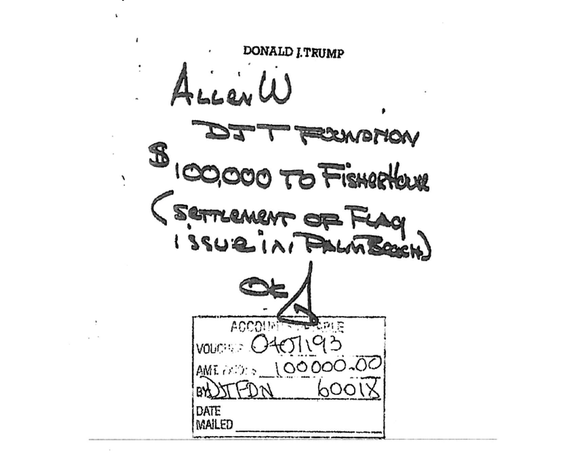 DONALD J. TRUMP
ALLEN W
DJT FOUNDATION
$100,000 TO FISHER HOUSE
(SETTLEMENT OF FLAG
ISSUE IN PALM BEACH)
OK
ACCOUNTS PAYABLE
VOUCHER 0401193
AMT 100000.00
BY DJTFDN 6001X
DATE
MAILED